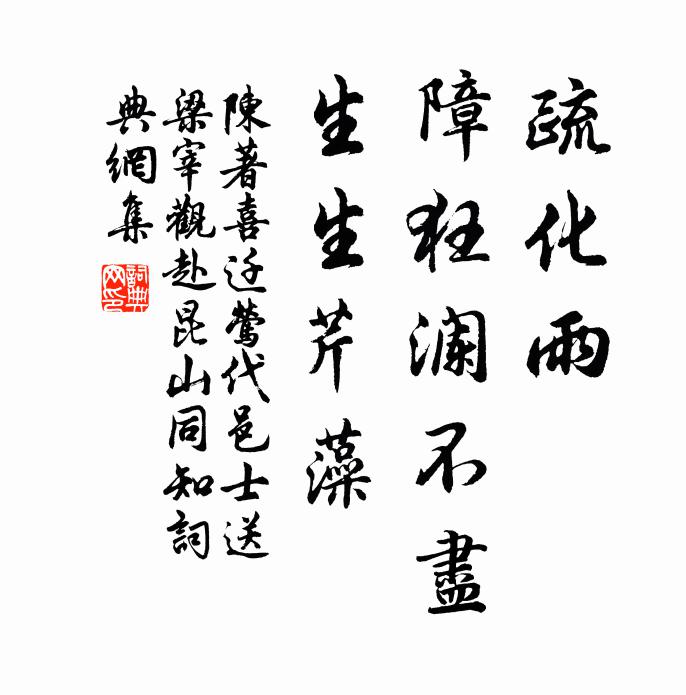 疏化雨
障狂澜不盡
生生芹藻
陳著喜迁鶯代邑士送
梁宰觀赴昆山同知詞
典網集
詞典网印